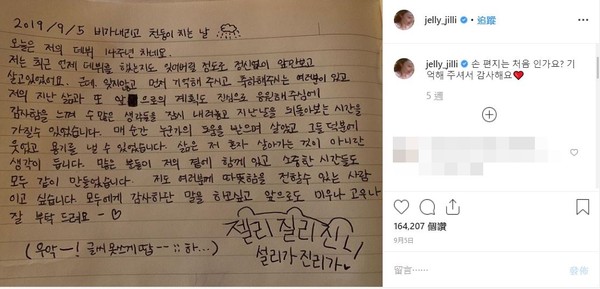 2019/9/5 비가내리고 천둥이 치는 날
오늘은 저의 데뷔 14주년 차네요.
저는 최근 언제 데뷔를 했는지도 잊어버릴 정도로 정신없이 앞만보고
살고있었어요. 근데 잊지않고 먼저 기억해 주시고 축하해주시는 여러분이 있고
저의 지난 삶과 또 앞으로의 계획도 진심으로 응원해 주심에
감사함을 느껴 수 많은 생각들을 잠시 내려놓고 지난날을 되돌아보는 시간을
가질수 있었습니다. 매 순간 누군가의 도움을 받으며 살았고 그들 덕분에
웃었고 용기를 낼 수 있었습니다. 삶은 저 혼자 살아가는 것이 아니란
생각이 듭니다. 많은 분들이 저의 곁에 함께 있고 소중한 시간들도
모두 같이 만들었습니다. 저도 여러분께 따뜻함을 전할수 있는 사람
이고 싶습니다. 모두에게 감사하단 말을 하고싶고 앞으로도 미우나 고우나
잘 부탁 드려요 ~ ♡
(우악—! 글씨 못쓰게땁 -- ;; 하...)
젤리 질리 진리
설리가 진리가♥
jelly_jilli • 追蹤
jelly_jilli 손 편지는 처음 인가요? 기억해 주셔서 감사해요❤
5 週
164,200 個讚
9月5日
留言⋯⋯
發佈